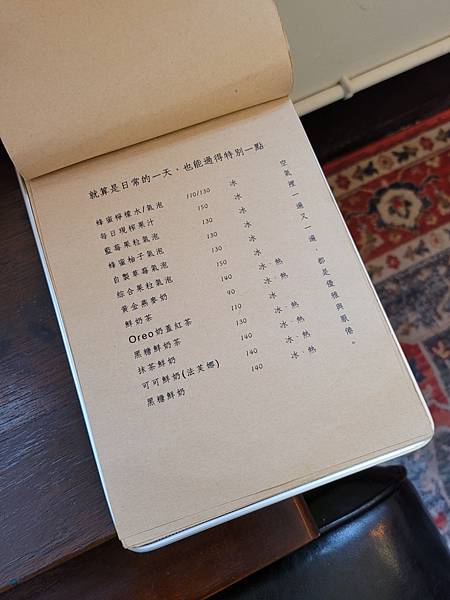 就算是日常的一天、也能過得特別一點
蜂蜜檸檬水/氣泡 110/130 冰
每日現榨果汁 150 冰
藍莓果粒氣泡 130 冰
蜂蜜柚子氣泡 130 冰
自製草莓氣泡 130 冰
綜合果粒氣泡 150 冰
黃金燕麥奶 140 冰·熱
鮮奶茶 90 冰·熱
Oreo奶蓋紅茶 110 冰
黑糖鮮奶茶 130 冰·熱
抹茶鮮奶 140 冰·熱
可可鮮奶(法芙娜) 140 冰·熱
黑糖鮮奶 140 冰·熱
空氣裡一遍又一遍、都是優雅與厭倦。